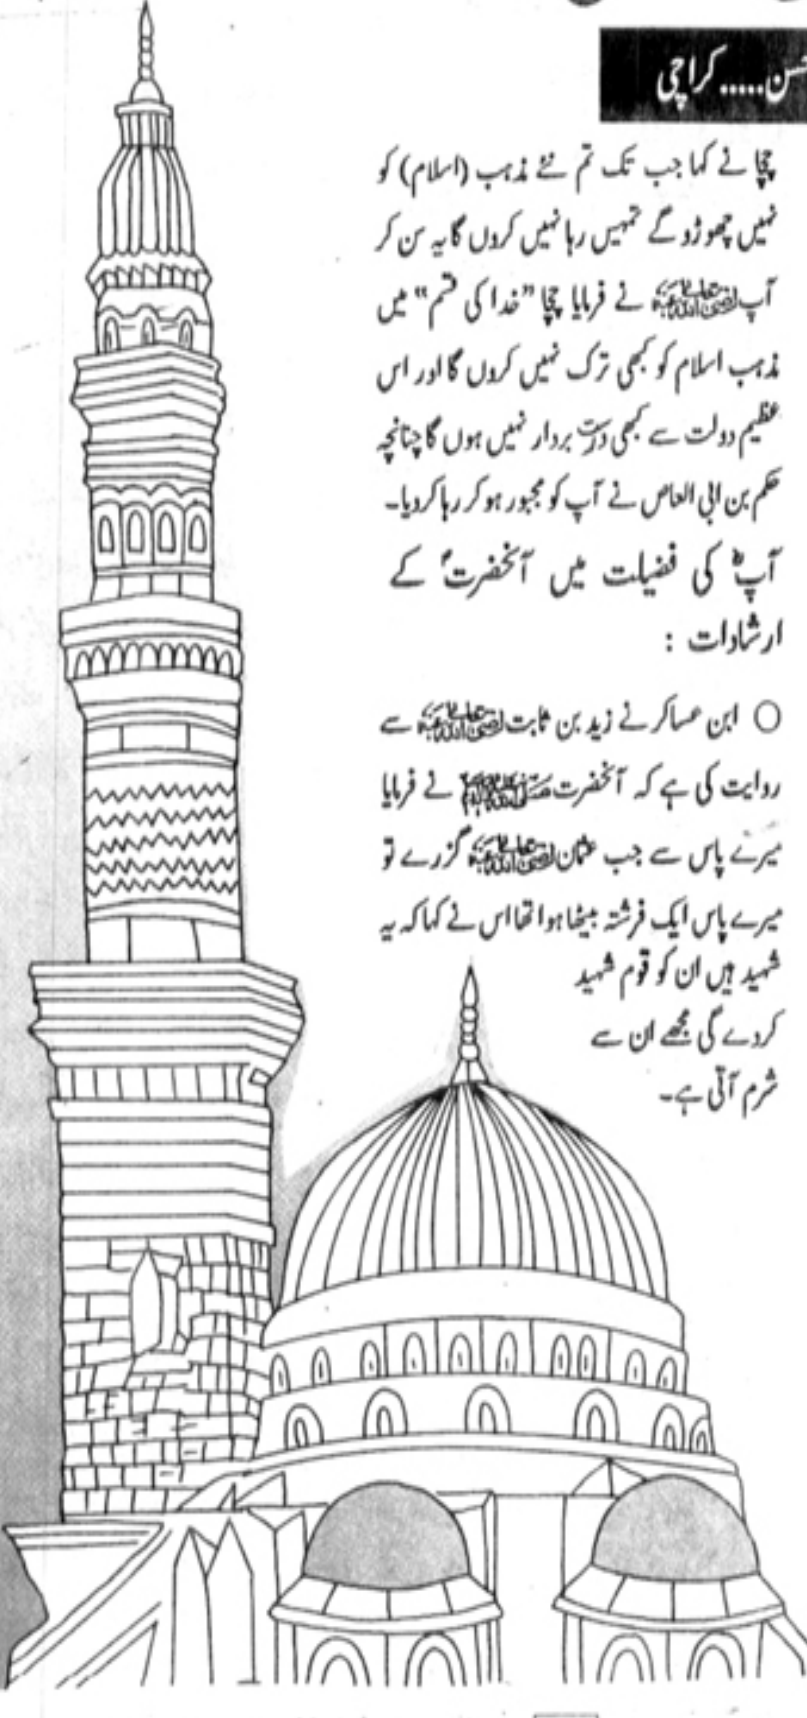 ..... کراچی
چچا نے کہا جب تک تم نئے مذہب (اسلام) کو
نہیں چھوڑو گے تمہیں رہا نہیں کروں گا یہ سن کر
آپ رضی اللہ تعالیٰ عنہ نے فرمایا چچا "خدا کی قسم" میں
مذہب اسلام کو کبھی ترک نہیں کروں گا اور اس
عظیم دولت سے کبھی دست بردار نہیں ہوں گا چنانچہ
حکم بن ابی العاص نے آپ کو مجبور ہو کر رہا کر دیا۔
آپؓ کی فضیلت میں آنحضرتؐ کے
ارشادات :
○ ابن عساکر نے زید بن ثابت رضی اللہ تعالیٰ عنہ سے
روایت کی ہے کہ آنحضرت صلی اللہ علیہ وسلم نے فرمایا
میرے پاس سے جب عثمان رضی اللہ تعالیٰ عنہ گزرے تو
میرے پاس ایک فرشتہ بیٹھا ہوا تھا اس نے کہا کہ یہ
شہید ہیں ان کو قوم شہید
کردے گی مجھے ان سے
شرم آتی ہے۔